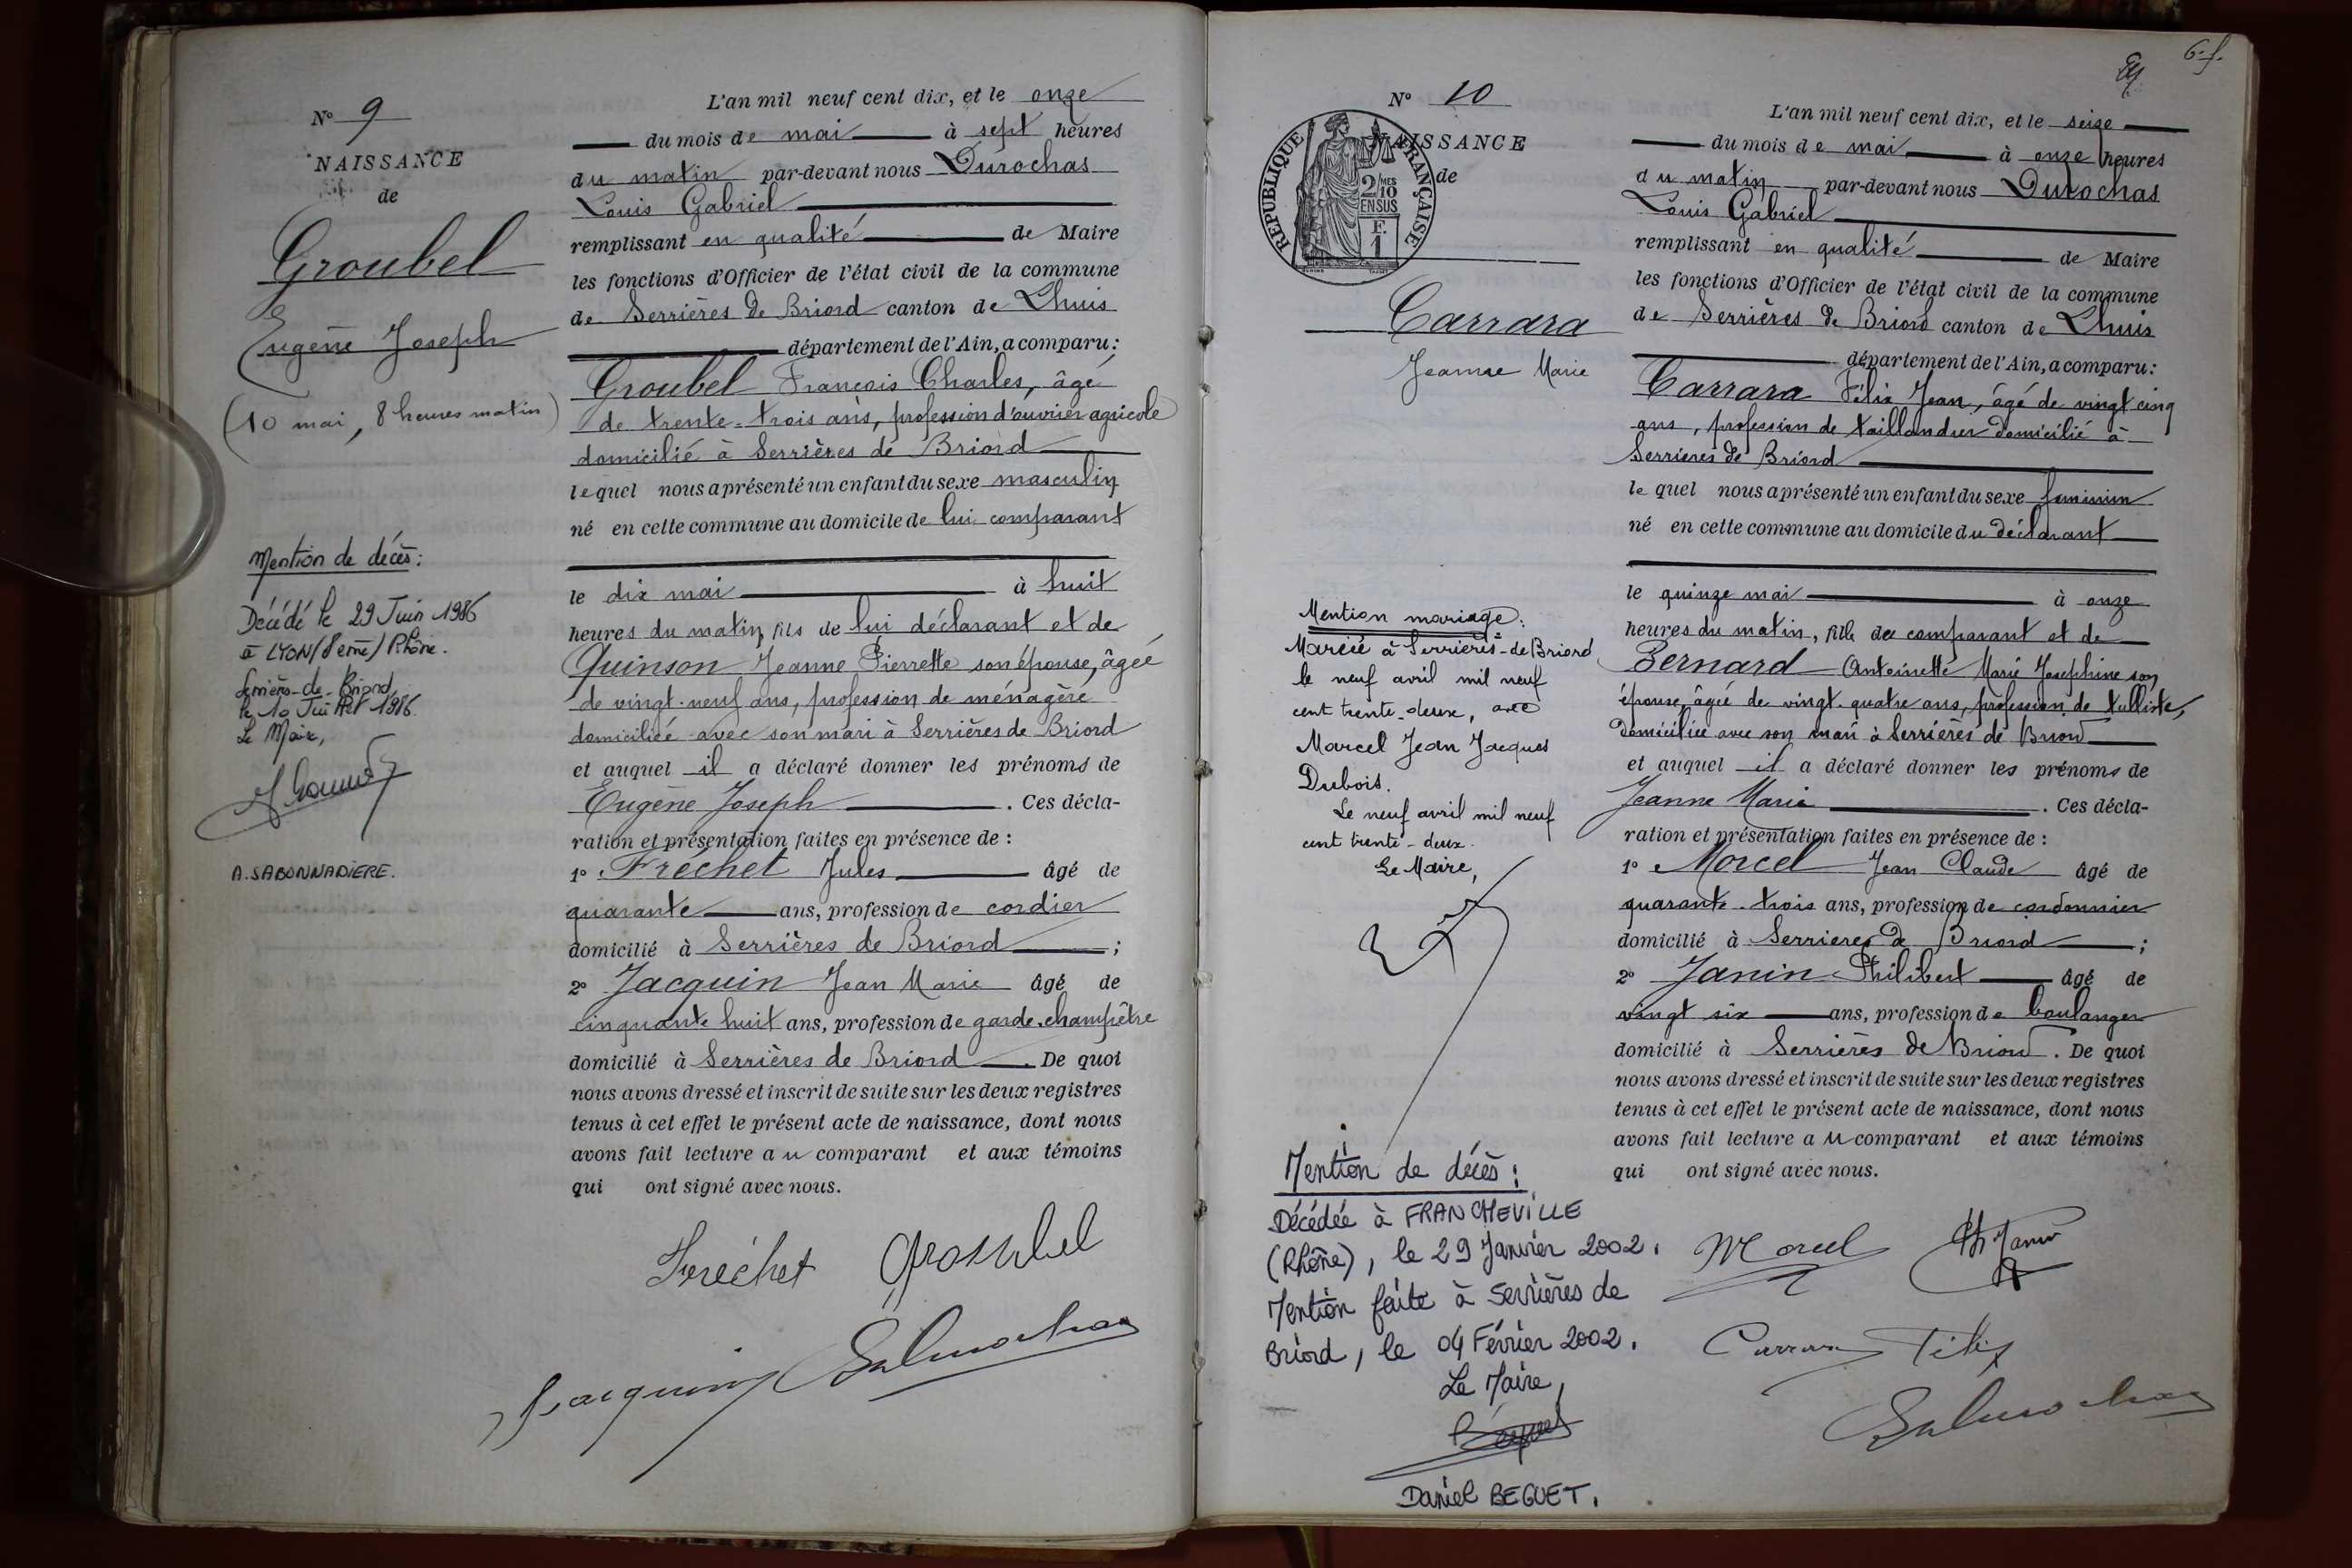 N° 9
NAISSANCE
de
Groubel
Eugène Joseph
(10 mai, 8 heures matin)
Mention de décès:
Décédé le 29 Juin 1986
à LYON (8eme) Rhône.
Serrières-de-Briord,
le 10 Juillet 1986.
Le Maire,
A. SABONNADIERE.
L'an mil neuf cent dix, et le onze
du mois de mai à sept heures
du matin par-devant nous Durochas
Louis Gabriel
remplissant en qualité de Maire
les fonctions d'Officier de l'état civil de la commune
de Serrières de Briord canton de Lhuis
département de l'Ain, a comparu:
Groubel François Charles, âgé
de trente-trois ans, profession d'ouvrier agricole
domicilié à Serrières de Briord
lequel nous a présenté un enfant du sexe masculin
né en cette commune au domicile de lui comparant
le dix mai à huit
heures du matin, fils de lui déclarant et de
Quinson Jeanne Pierrette son épouse, âgée
de vingt-neuf ans, profession de ménagère
domiciliée avec son mari à Serrières de Briord
et auquel il a déclaré donner les prénoms de
Eugène Joseph. Ces décla-
ration et présentation faites en présence de :
1° Fréchet Jules âgé de
quarante ans, profession de cordier
domicilié à Serrières de Briord ;
2° Jacquin Jean Marie âgé de
cinquante huit ans, profession de garde-champêtre
domicilié à Serrières de Briord. De quoi
nous avons dressé et inscrit de suite sur les deux registres
tenus à cet effet le présent acte de naissance, dont nous
avons fait lecture au comparant et aux témoins
qui ont signé avec nous.
Fréchet Groubel
Jacquin Durochas
6. f.
N° 10
NAISSANCE
de
RÉPUBLIQUE FRANÇAISE
2/MES 10
EN SUS
F. 1
Carrara
Jeanne Marie
Mention mariage:
Mariée à Serrières-de-Briord
le neuf avril mil neuf
cent trente-deux, avec
Marcel Jean Jacques
Dubois.
Le neuf avril mil neuf
cent trente-deux.
Le Maire,
Mention de décès :
Décédée à FRANCHEVILLE
(Rhône), le 29 Janvier 2002.
Mention faite à Serrières de
Briord, le 04 Février 2002.
Le Maire,
Béguet
Daniel BEGUET.
L'an mil neuf cent dix, et le seize
du mois de mai à onze heures
du matin par-devant nous Durochas
Louis Gabriel
remplissant en qualité de Maire
les fonctions d'Officier de l'état civil de la commune
de Serrières de Briord canton de Lhuis
département de l'Ain, a comparu:
Carrara Félix Jean, âgé de vingt cinq
ans, profession de taillandier domicilié à
Serrieres de Briord
le quel nous a présenté un enfant du sexe feminin
né en cette commune au domicile du déclarant
le quinze mai à onze
heures du matin, fille du comparant et de
Bernard Antoinette Marie Josephine son
épouse, âgée de vingt-quatre ans, profession de tulliste,
domiciliée avec son mari à Serrières de Briord
et auquel il a déclaré donner les prénoms de
Jeanne Marie. Ces décla-
ration et présentation faites en présence de :
1° Morcel Jean Claude âgé de
quarante-trois ans, profession de cordonnier
domicilié à Serrieres de Briord ;
2° Janin Philibert âgé de
vingt six ans, profession de boulanger
domicilié à Serrières de Briord. De quoi
nous avons dressé et inscrit de suite sur les deux registres
tenus à cet effet le présent acte de naissance, dont nous
avons fait lecture au comparant et aux témoins
qui ont signé avec nous.
Morcel Ph Janin
Carrara Félix
Durochas